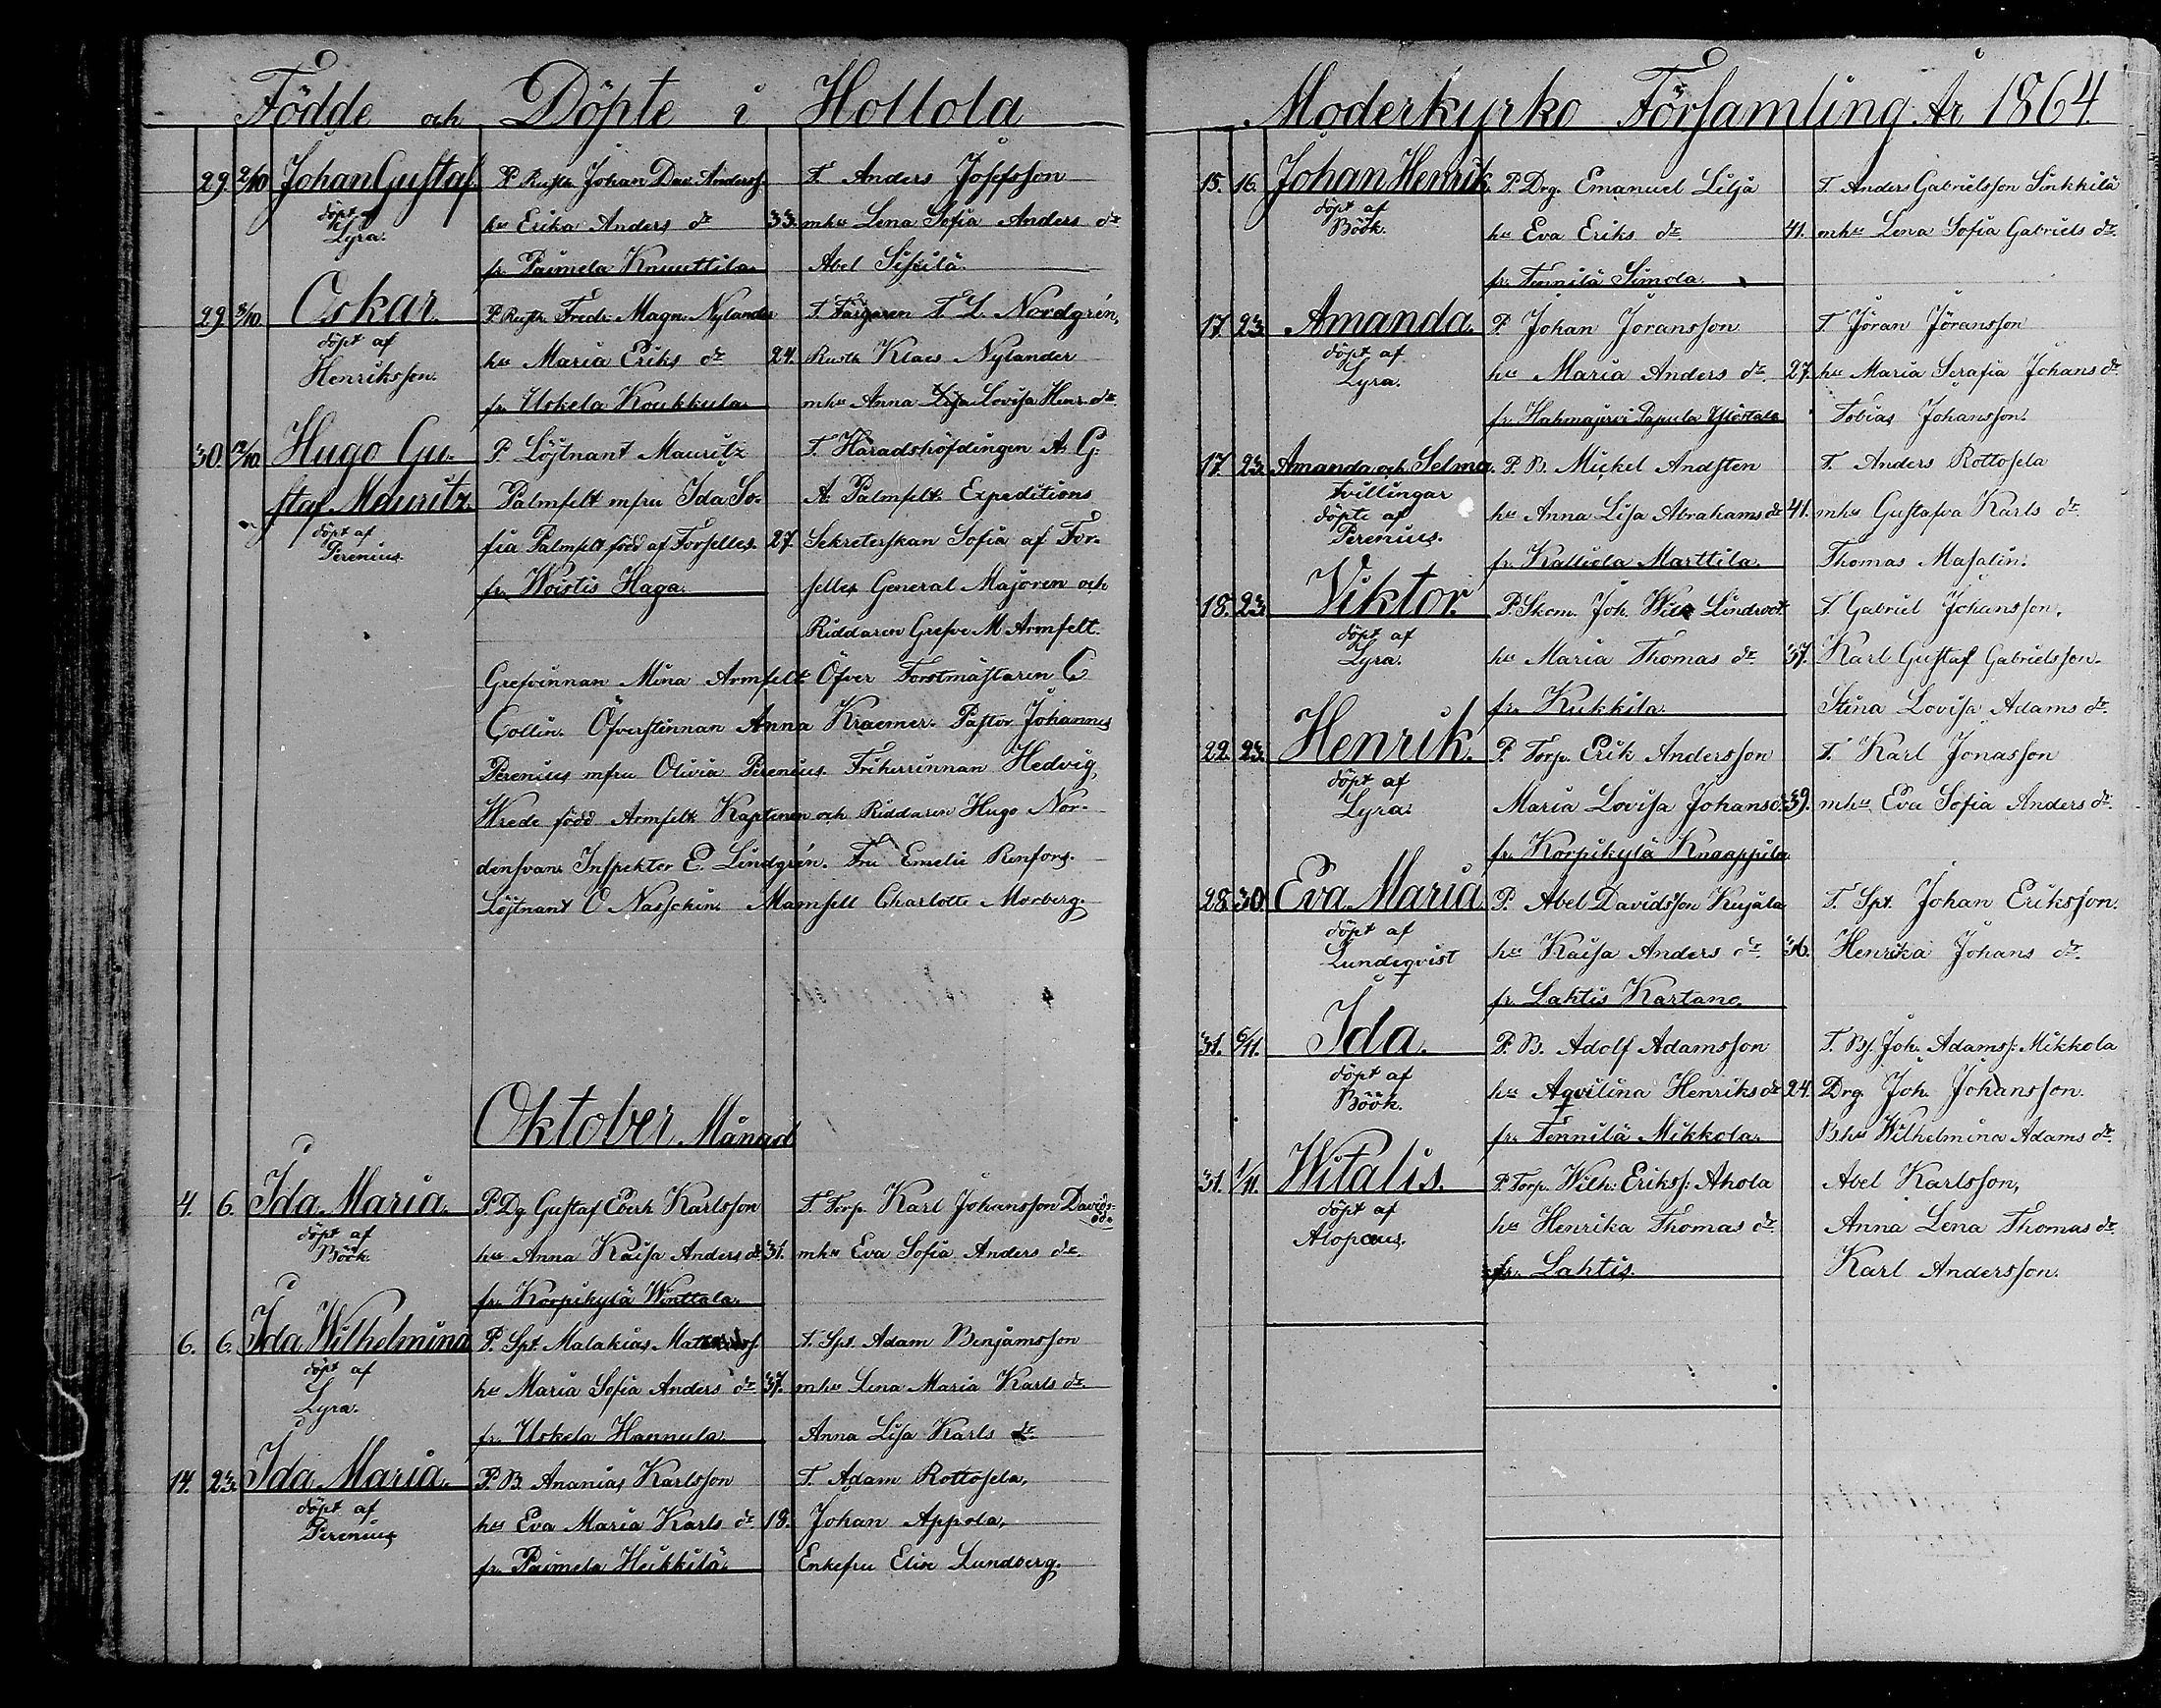 Födde och Döpte i Hollola
29. 2/10 Johan Gustaf. P. Rusth. Johan Dav. Anderss. T. Anders Josefsson
döpt af hu Erika Anders dr 33. mhu Lena Sofia Anders dr
Lyra. fr. Paimela Knuuttila. Abel Sipilä.
29. 3/10. Oskar. P. Rusth. Fredr. Magn. Nylander T. Färgaren F. L. Nordgrén,
döpt af hu Maria Eriks dr 24. Rusth. Klaes Nylander
Henriksson. fr. Uskela Koukkula. mhu Anna Lisa Lovisa Henr. dr.
30. 12/10. Hugo Gu- P. Löjtnant Mauritz T. Häradshöfdingen A. G.
staf Mauritz. Palmfelt mfru Ida So- A. Palmfelt. Expeditions
döpt af fia Palmfelt född af Forselles. 27. Sekreterskan Sofia af For-
Perenius. fr. Woistis Haga. selles General Majoren och
Riddaren Grefve M Armfelt.
Grefvinnan Mina Armfelt Öfver Forstmästaren C
Collin. Öfverstinnan Anna Kraemer. Pastor Johannes
Perenius mfru Olivia Perenius. Friherrinnan Hedvig
Wrede född Armfelt Kaptenen och Riddaren Hugo Nor-
densvan. Inspektor E. Lindgrén. Fru Emelie Renfors.
Löjtnant O Nasschin. Mamsell Charlotte Morberg.
Oktober Månad
4. 6. Ida Maria. P. Dg Gustaf Everh Karlsson T. Torp. Karl Johansson Davids-
döpt af hu Anna Kaisa Anders dr 31. mhu Eva Sofia Anders dr.
Böök. fr. Korpikylä Winttala.
6. 6. Ida Wilhelmina P. Spt. Malakias T. Spt. Adam Benjamsson
döpt af hu Maria Sofia Anders dr 37. mhu Lena Maria Karls dr.
Lyra. fr. Uskela Hannula. Anna Lisa Karls dr
14. 23. Ida Maria. P. B. Ananias Karlsson T. Adam Rottosela,
döpt af hu Eva Maria Karls dr. 18. Johan Appola,
Perenius fr. Paimela Heikkilä. Enkefru Elise Lundberg.
Moderkyrko Församling År 1864.
15. 16. Johan Henrik. P. Drg. Emanuel Lilja T. Anders Gabrielsson Sinkkilä
döpt af hu Eva Eriks dr. 41. mhu Lena Sofia Gabriels dr.
Böök. fr. Tennilä Simola.
17. 23. Amanda. P. Johan Joransson T. Jöran Jöransson
döpt af hu Maria Anders dr. 27. hu Maria Serafia Johans dr
Lyra. fr. Hahmajervi Papula Tobias Johansson.
17. 23. Amanda och Selma. P. B. Mickel Andsten T. Anders Rottosela
tvillingar
döpte af hu Anna Lisa Abrahams dr 41. mhu Gustafva Karls dr.
Perenius. fr. Kalliola Marttila. Thomas Masalin.
18. 23. Viktor. P. Skom. Joh. Wilh Lindroot T. Gabriel Johansson,
döpt af hu Maria Thomas dr 37. Karl Gustaf Gabrielsson.
Lyra. fr. Kukkila. Stina Lovisa Adams dr.
22. 23. Henrik. P. Torp. Erik Andersson T. Karl Jonasson
döpt af Maria Lovisa Johans d. 39. mhu Eva Sofia Anders dr.
Lyra. fr. Korpikylä Knaappila.
28. 30. Eva Maria P. Abel Davidsson Kujala T. Spt. Johan Eriksson.
döpt af hu Kaisa Anders dr. 36. Henrika Johans dr.
Lundeqvist fr. Lahtis Kartano.
31. 6/11. Ida. P. B. Adolf Adamsson T. Bs. Joh. Adamss: Mikkola
döpt af hu Aqvilina Henriks dr 24. Drg. Joh. Johansson.
Böök. fr. Tennilä Mikkola. B.hu Wilhelmina Adams dr.
31. 1/11. Witalis. P. Torp. Wilh: Erikss: Ahola Abel Karlsson,
döpt af hu Henrika Thomas dr Anna Lena Thomas dr
Alopæus. fr. Lahtis. Karl Andersson.